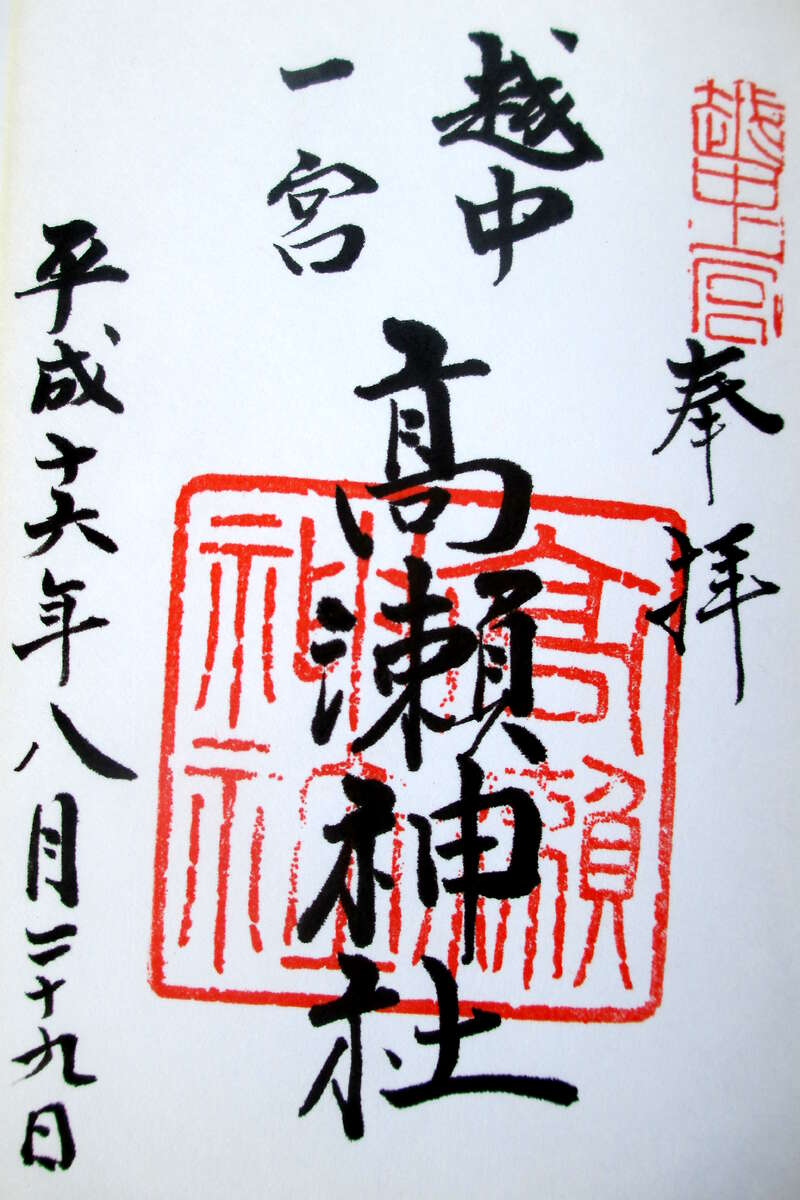 越中一宮
奉拝
越中
一宮
高瀬神社
高瀬神社
平成十六年八月二十九日